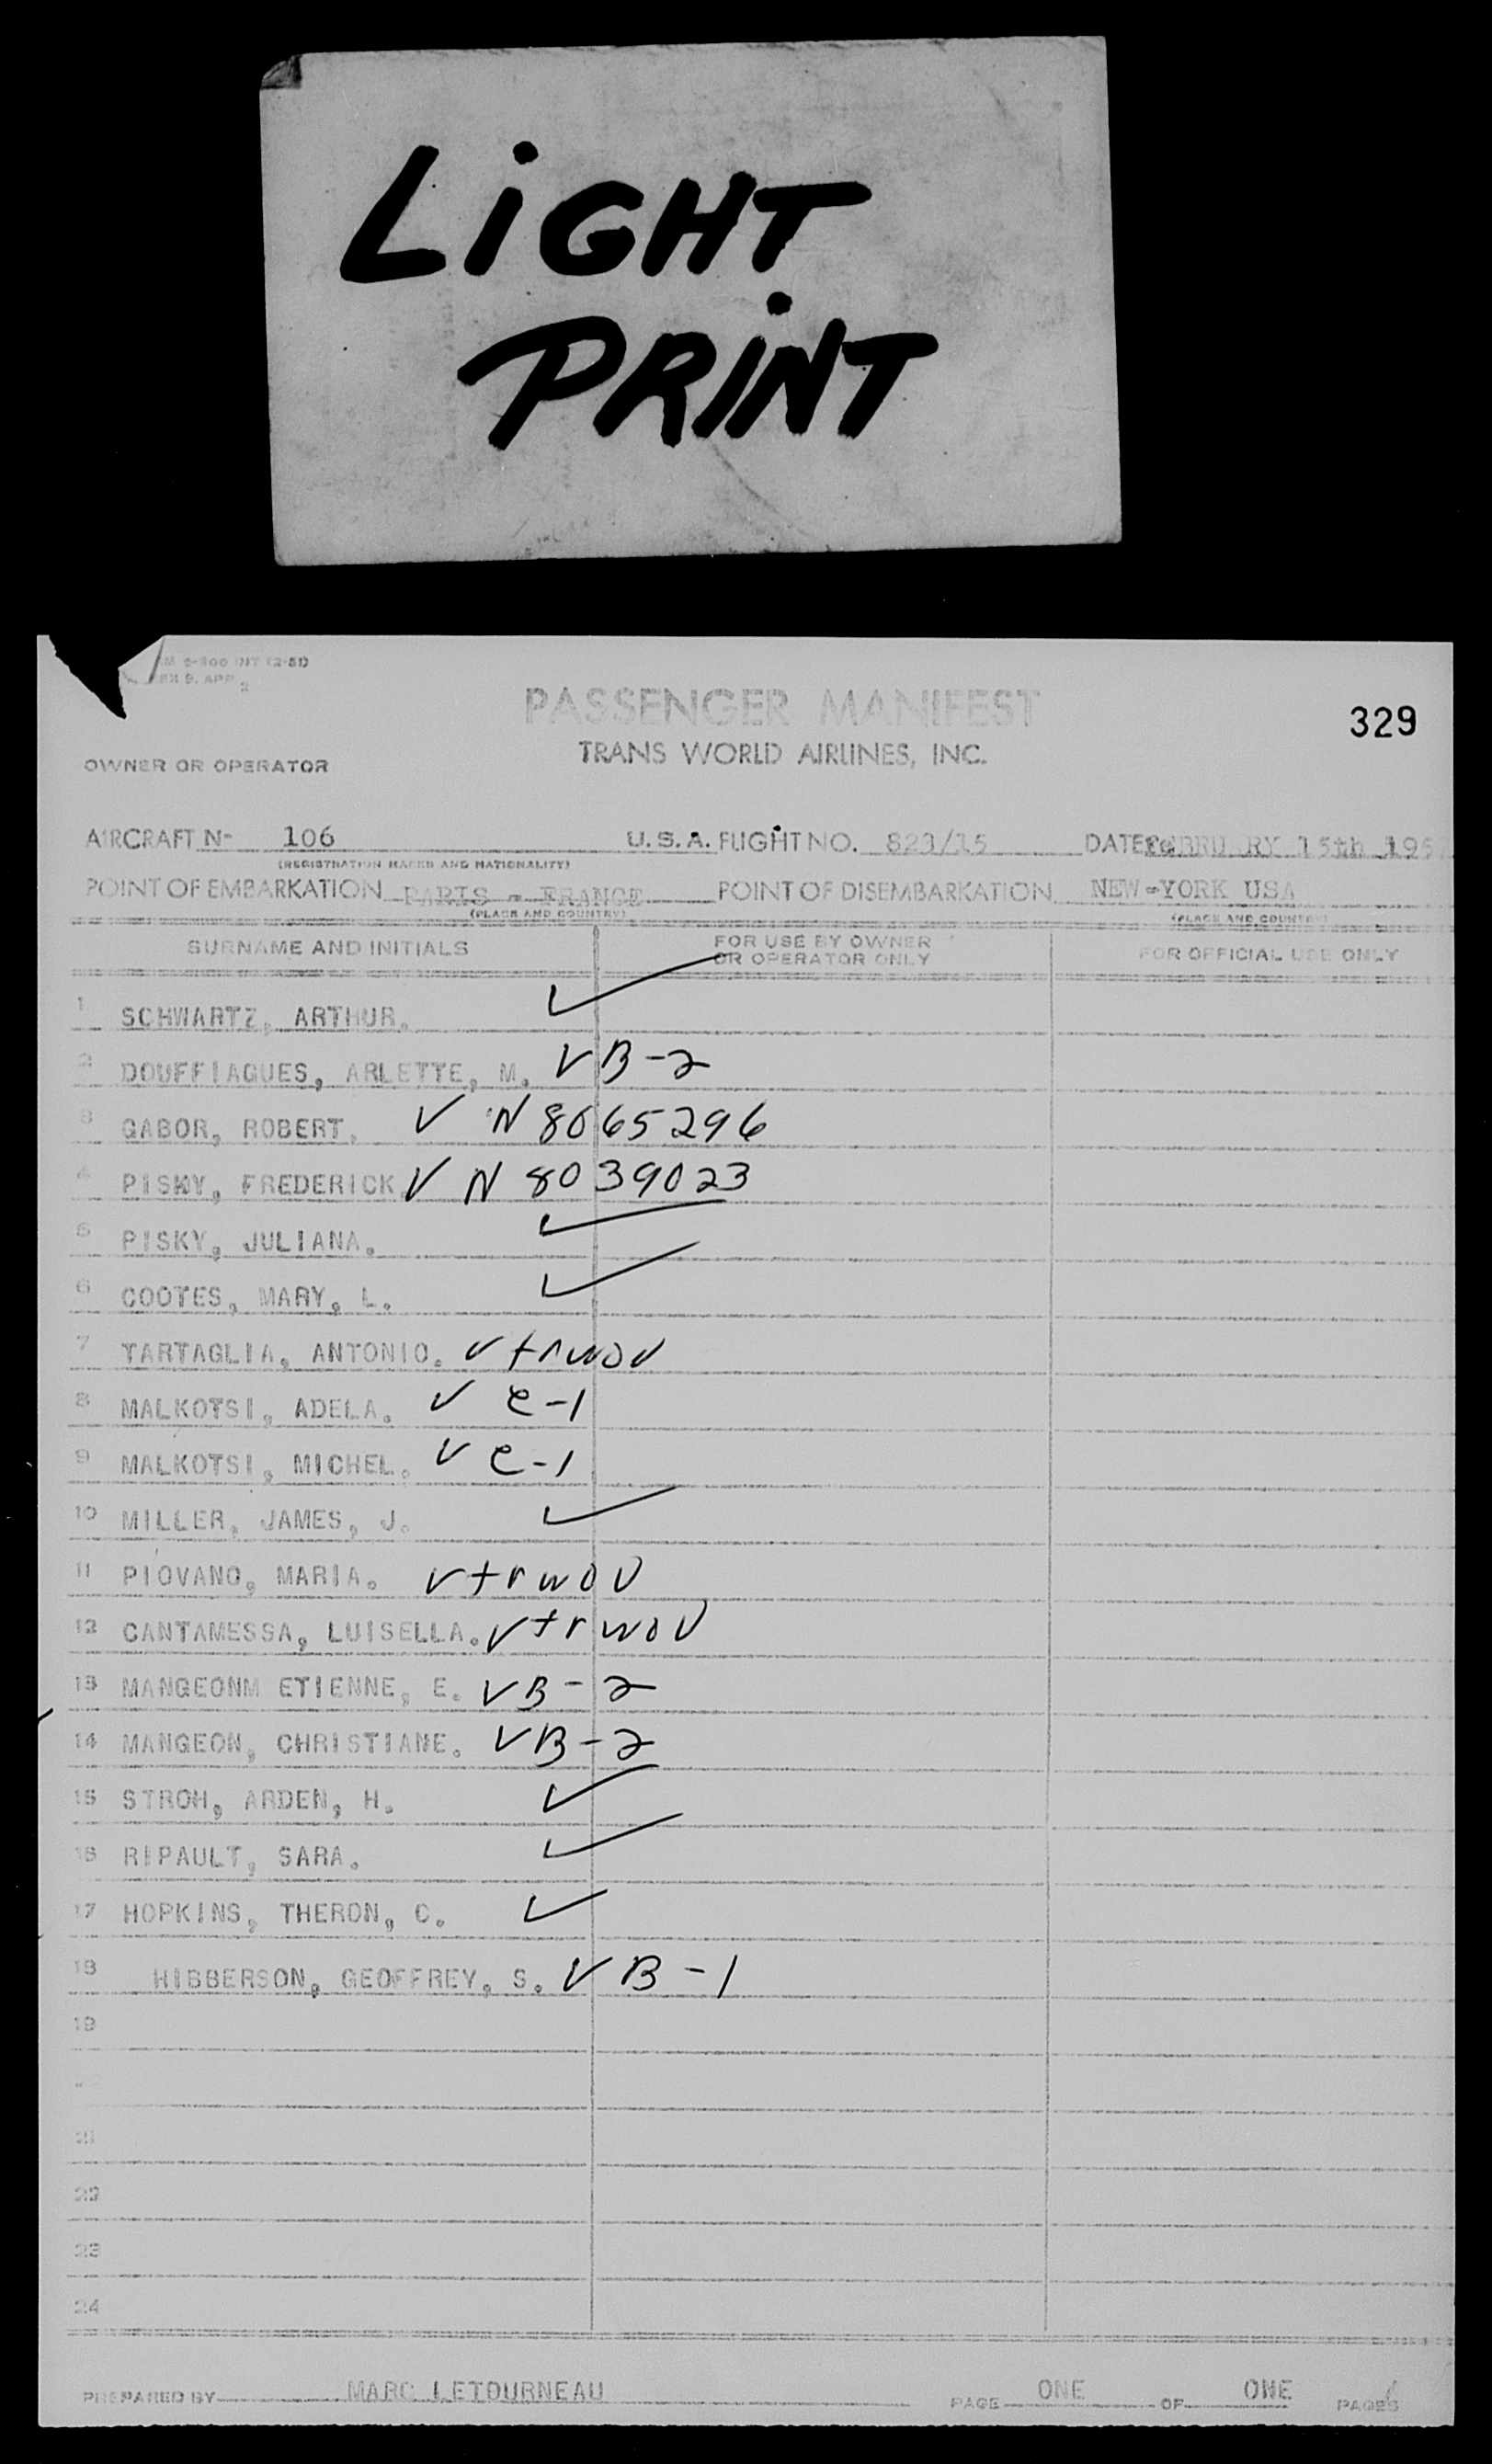 LiGHT
PRiNT
PASSENGER MANIFEST
329
TRANS WORLD AIRLINES, INC.
OWNER OR OPERATOR
AIRCRAFT Nº 106 U.S.A. FLIGHT NO. 823/15 DATE 15th 195
(REGISTRATION MARKS AND NATIONALITY)
POINT OF EMBARKATION PARIS - FRANCE POINT OF DISEMBARKATION NEW-YORK USA
(PLACE AND COUNTRY) (PLACE AND COUNTRY)
SURNAME AND INITIALS FOR USE BY OWNER OR OPERATOR ONLY FOR OFFICIAL USE ONLY
1 SCHWARTZ, ARTHUR. ✓
2 DOUFFIAGUES, ARLETTE, M. ✓ B-2
3 GABOR, ROBERT. ✓ N 8065296
4 PISKY, FREDERICK ✓ N 8039023
5 PISKY, JULIANA. ✓
6 COOTES, MARY, L. ✓
7 TARTAGLIA, ANTONIO. ✓ trwov
8 MALKOTSI, ADELA. ✓ C-1
9 MALKOTSI, MICHEL. ✓ C-1
10 MILLER, JAMES, J. ✓
11 PIOVANO, MARIA. ✓ trwov
12 CANTAMESSA, LUISELLA. ✓ trwov
13 MANGEONM ETIENNE, E. ✓ B-2
14 MANGEON, CHRISTIANE. ✓ B-2
15 STROH, ARDEN, H. ✓
16 RIPAULT, SARA. ✓
17 HOPKINS, THERON, C. ✓
18 HIBBERSON, GEOFFREY, S. ✓ B-1
19
21
22
23
24
PREPARED BY MARC LETOURNEAU PAGE ONE OF ONE PAGES